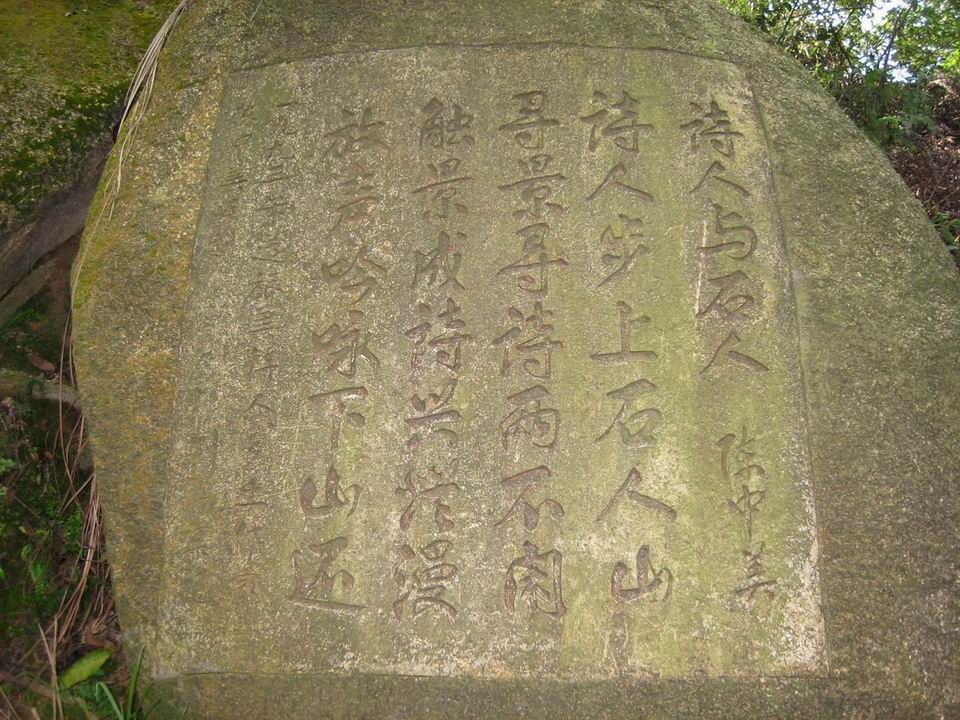 诗人与石人 陈中美
诗人步上石人山
寻景寻诗两不闲
触景成詩兴烂漫
放声吟咏下山还